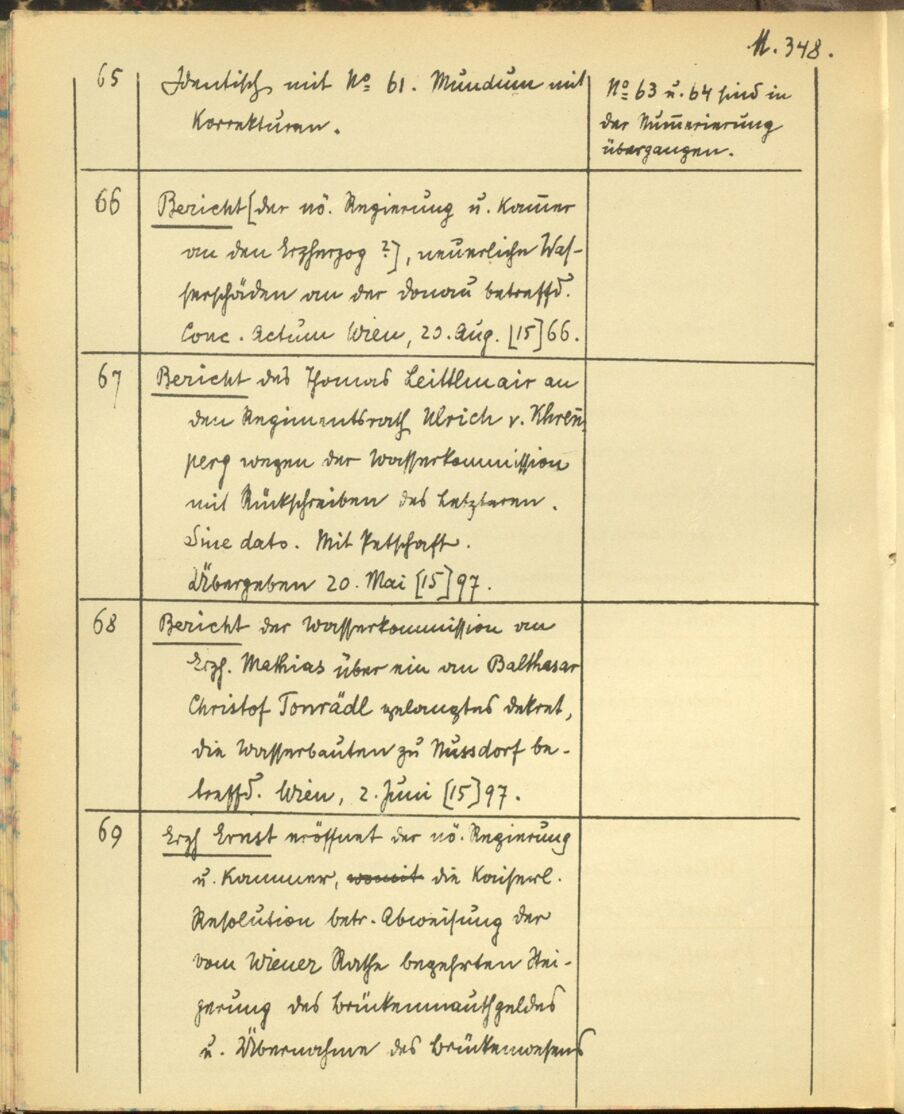 M. 348.
65 Identisch mit No 61. Mundum mit
Korrekturen.
No 63 u. 64 sind in
der Num̄erierung
übergangen.
66 Bericht [der nö. Regierung u. Kam̄er
an den Erzherzog ?], neuerliche Was-
serschäden an der Donau betreffd.
Conc. Actum Wien, 20. Aug. [15]66.
67 Bericht des Thomas Leittlmair an
den Regimentsrath Ulrich v. Khren̄
perg wegen der Wasserkommission
mit Rückschreiben des Letzteren.
Sine dato. Mit Petschaft.
Übergeben 20. Mai [15]97.
68 Bericht der Wasserkommission an
Erzh. Mathias über ein an Balthasar
Christof Tonrädl gelangtes Dekret,
die Wasserbauten zu Nussdorf be-
treffd. Wien, 2. Juni [15]97.
69 Erzh Ernst eröffnet der nö. Regierung
u. Kammer, womit die Kaiserl.
Resolution betr. Abweisung der
vom Wiener Rathe begehrten Stei-
gerung des Brückenmauthgeldes
u. Übernahme des Brückenwesens